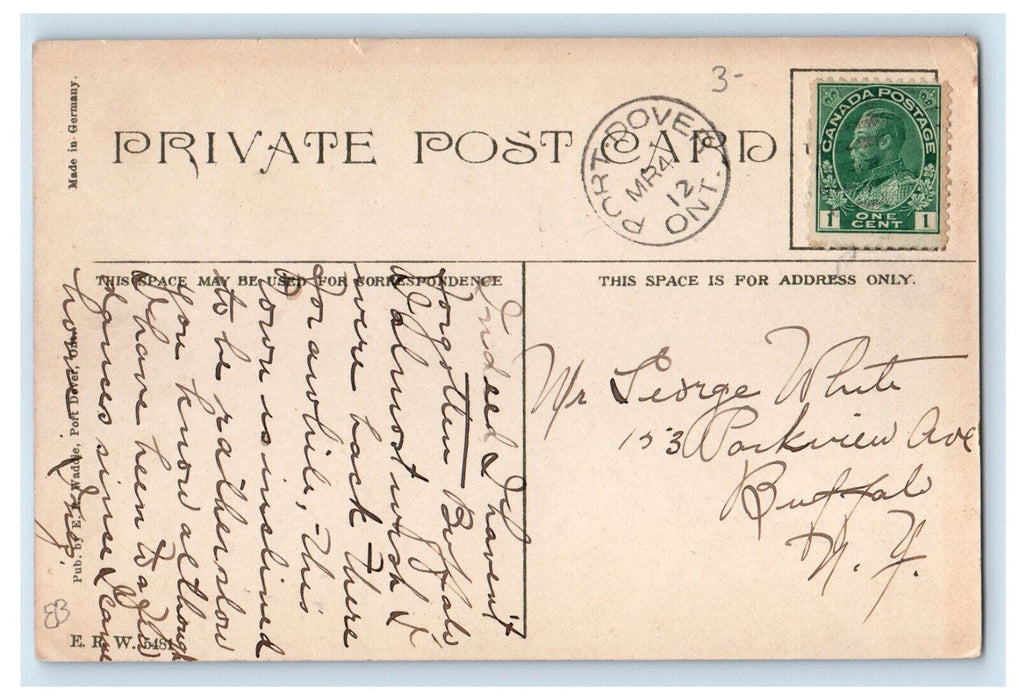 3-
Made in Germany.
PRIVATE POST CARD
PORT DOVER
MR 4
12
ONT.
CANADA POSTAGE
1 ONE CENT 1
THIS SPACE MAY BE USED FOR CORRESPONDENCE
THIS SPACE IS FOR ADDRESS ONLY.
Indeed I haven't
forgotten Buffalo
& almost wish I
were back there
for awhile, - This
town is inclined
to be rather slow
you know although
I have been to a few
dances since I came
home.
Mr George White
153 Parkview Ave
Buffalo
N. Y.
Pub. by E. R. Waddle, Port Dover, Ont.
83
E. R. W. 5481